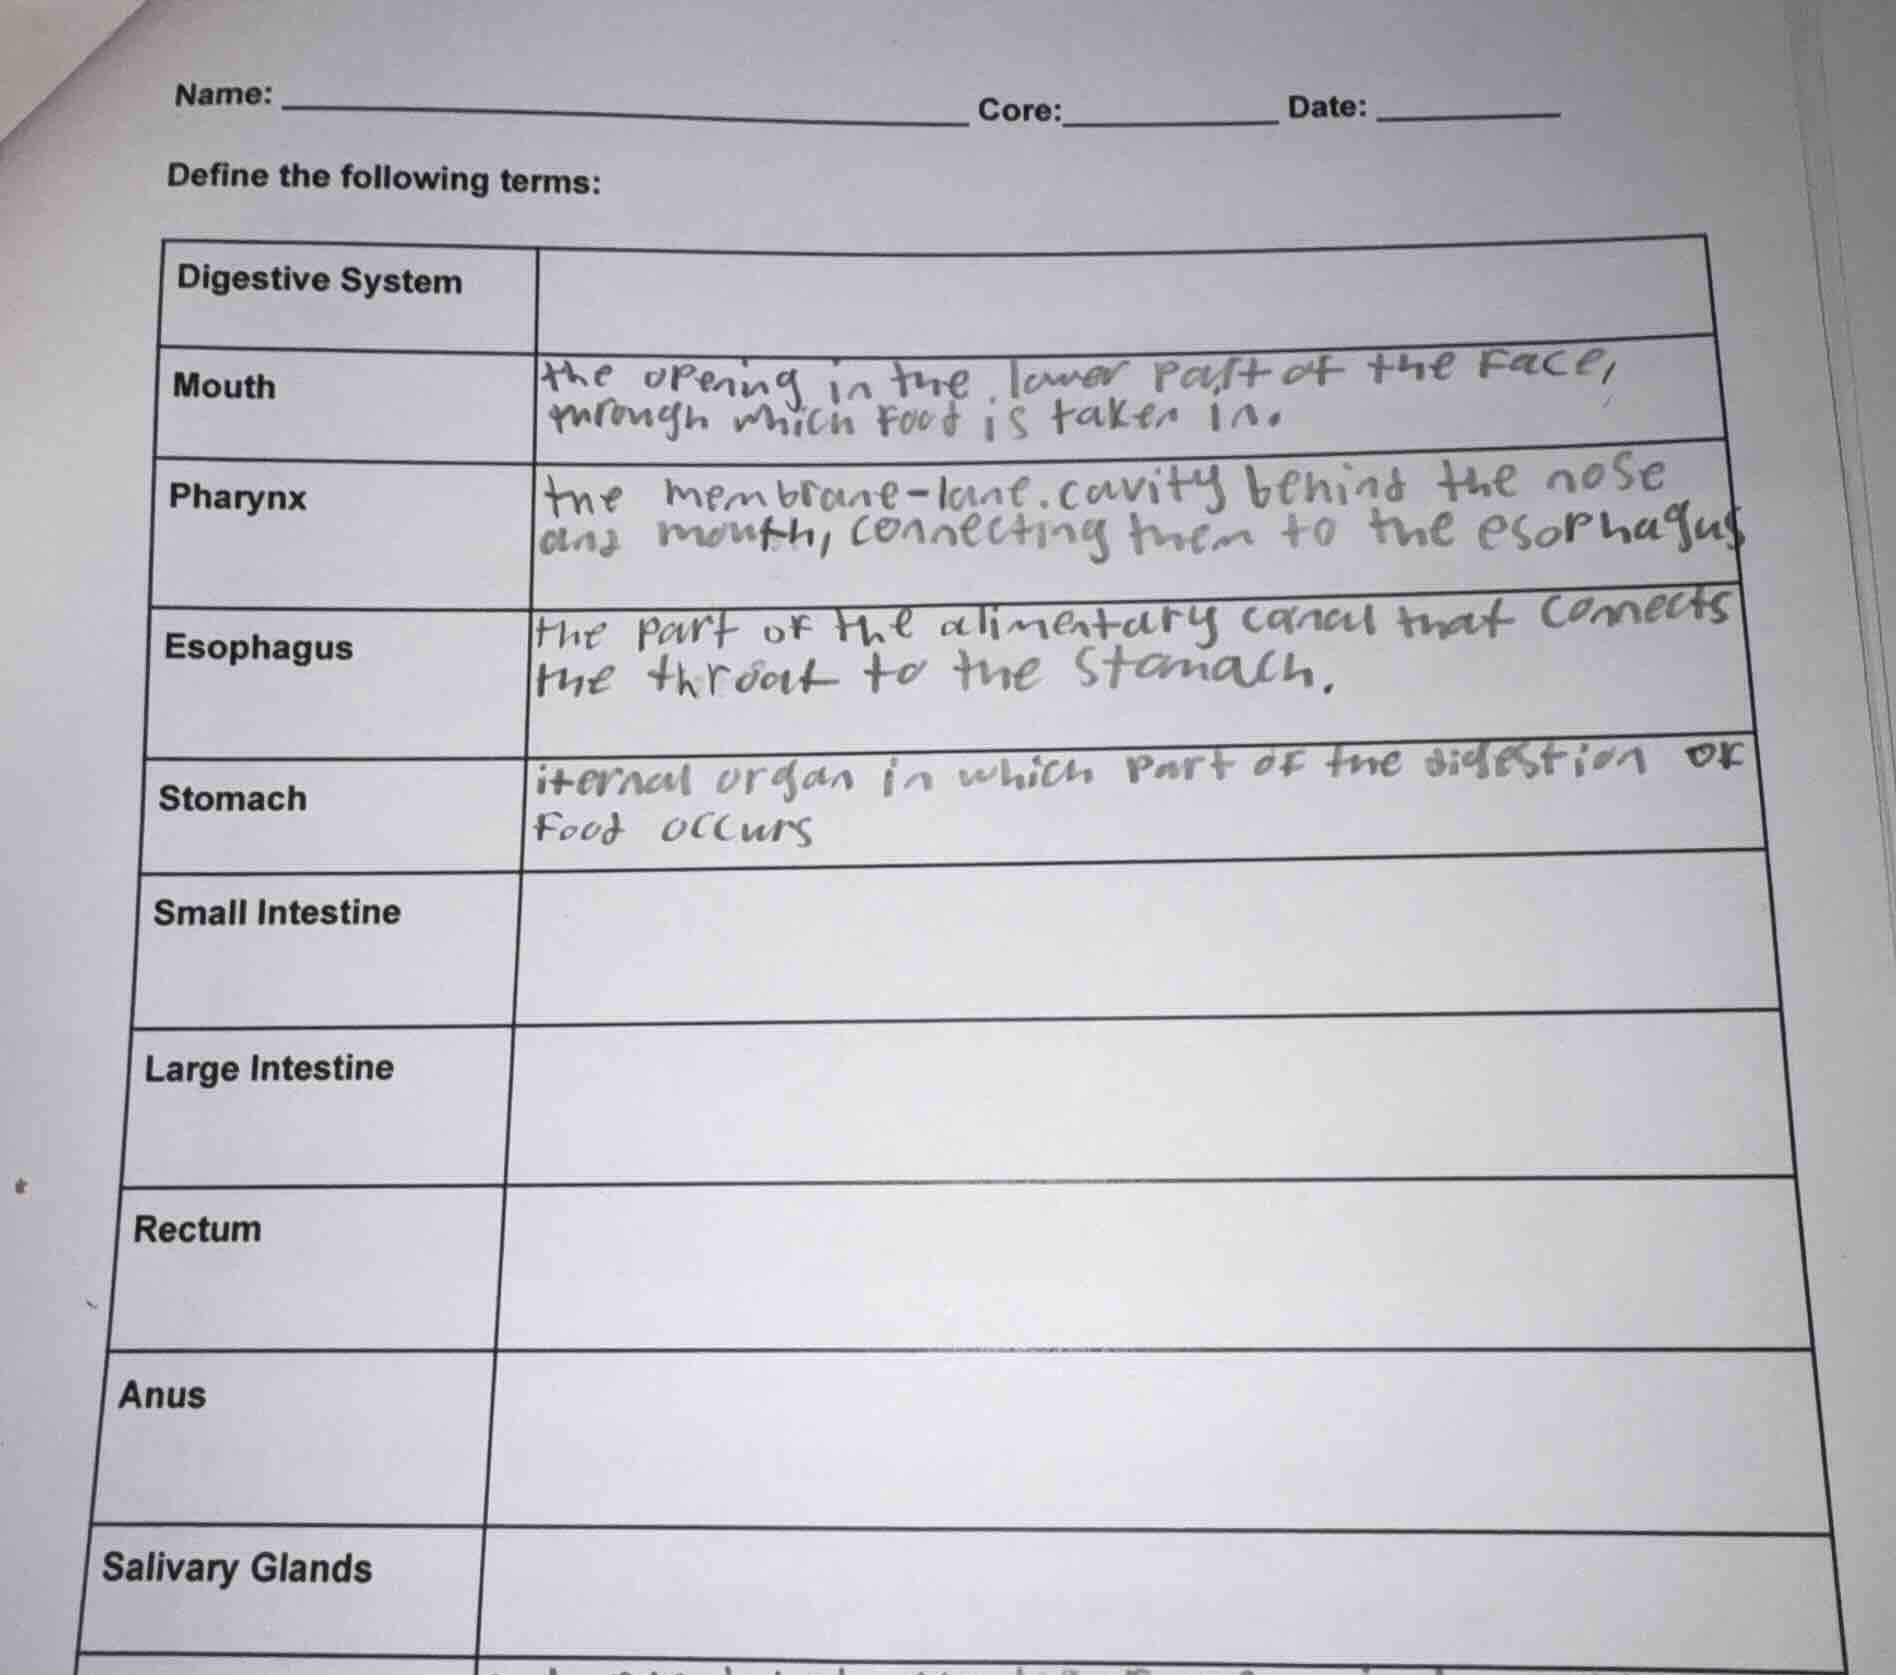 Name: Core: Date:
Define the following terms:
Digestive System
Mouth
the opening in the lower part of the Face,
through which Food is taken in.
Pharynx
the membrane-lane.cavity behind the nose
and mouth, connecting them to the esophagus
Esophagus
the part of the alimentary canal that connects
the throat to the stomach.
Stomach
iternal organ in which part of the digestion of
Food occurs
Small Intestine
Large Intestine
Rectum
Anus
Salivary Glands